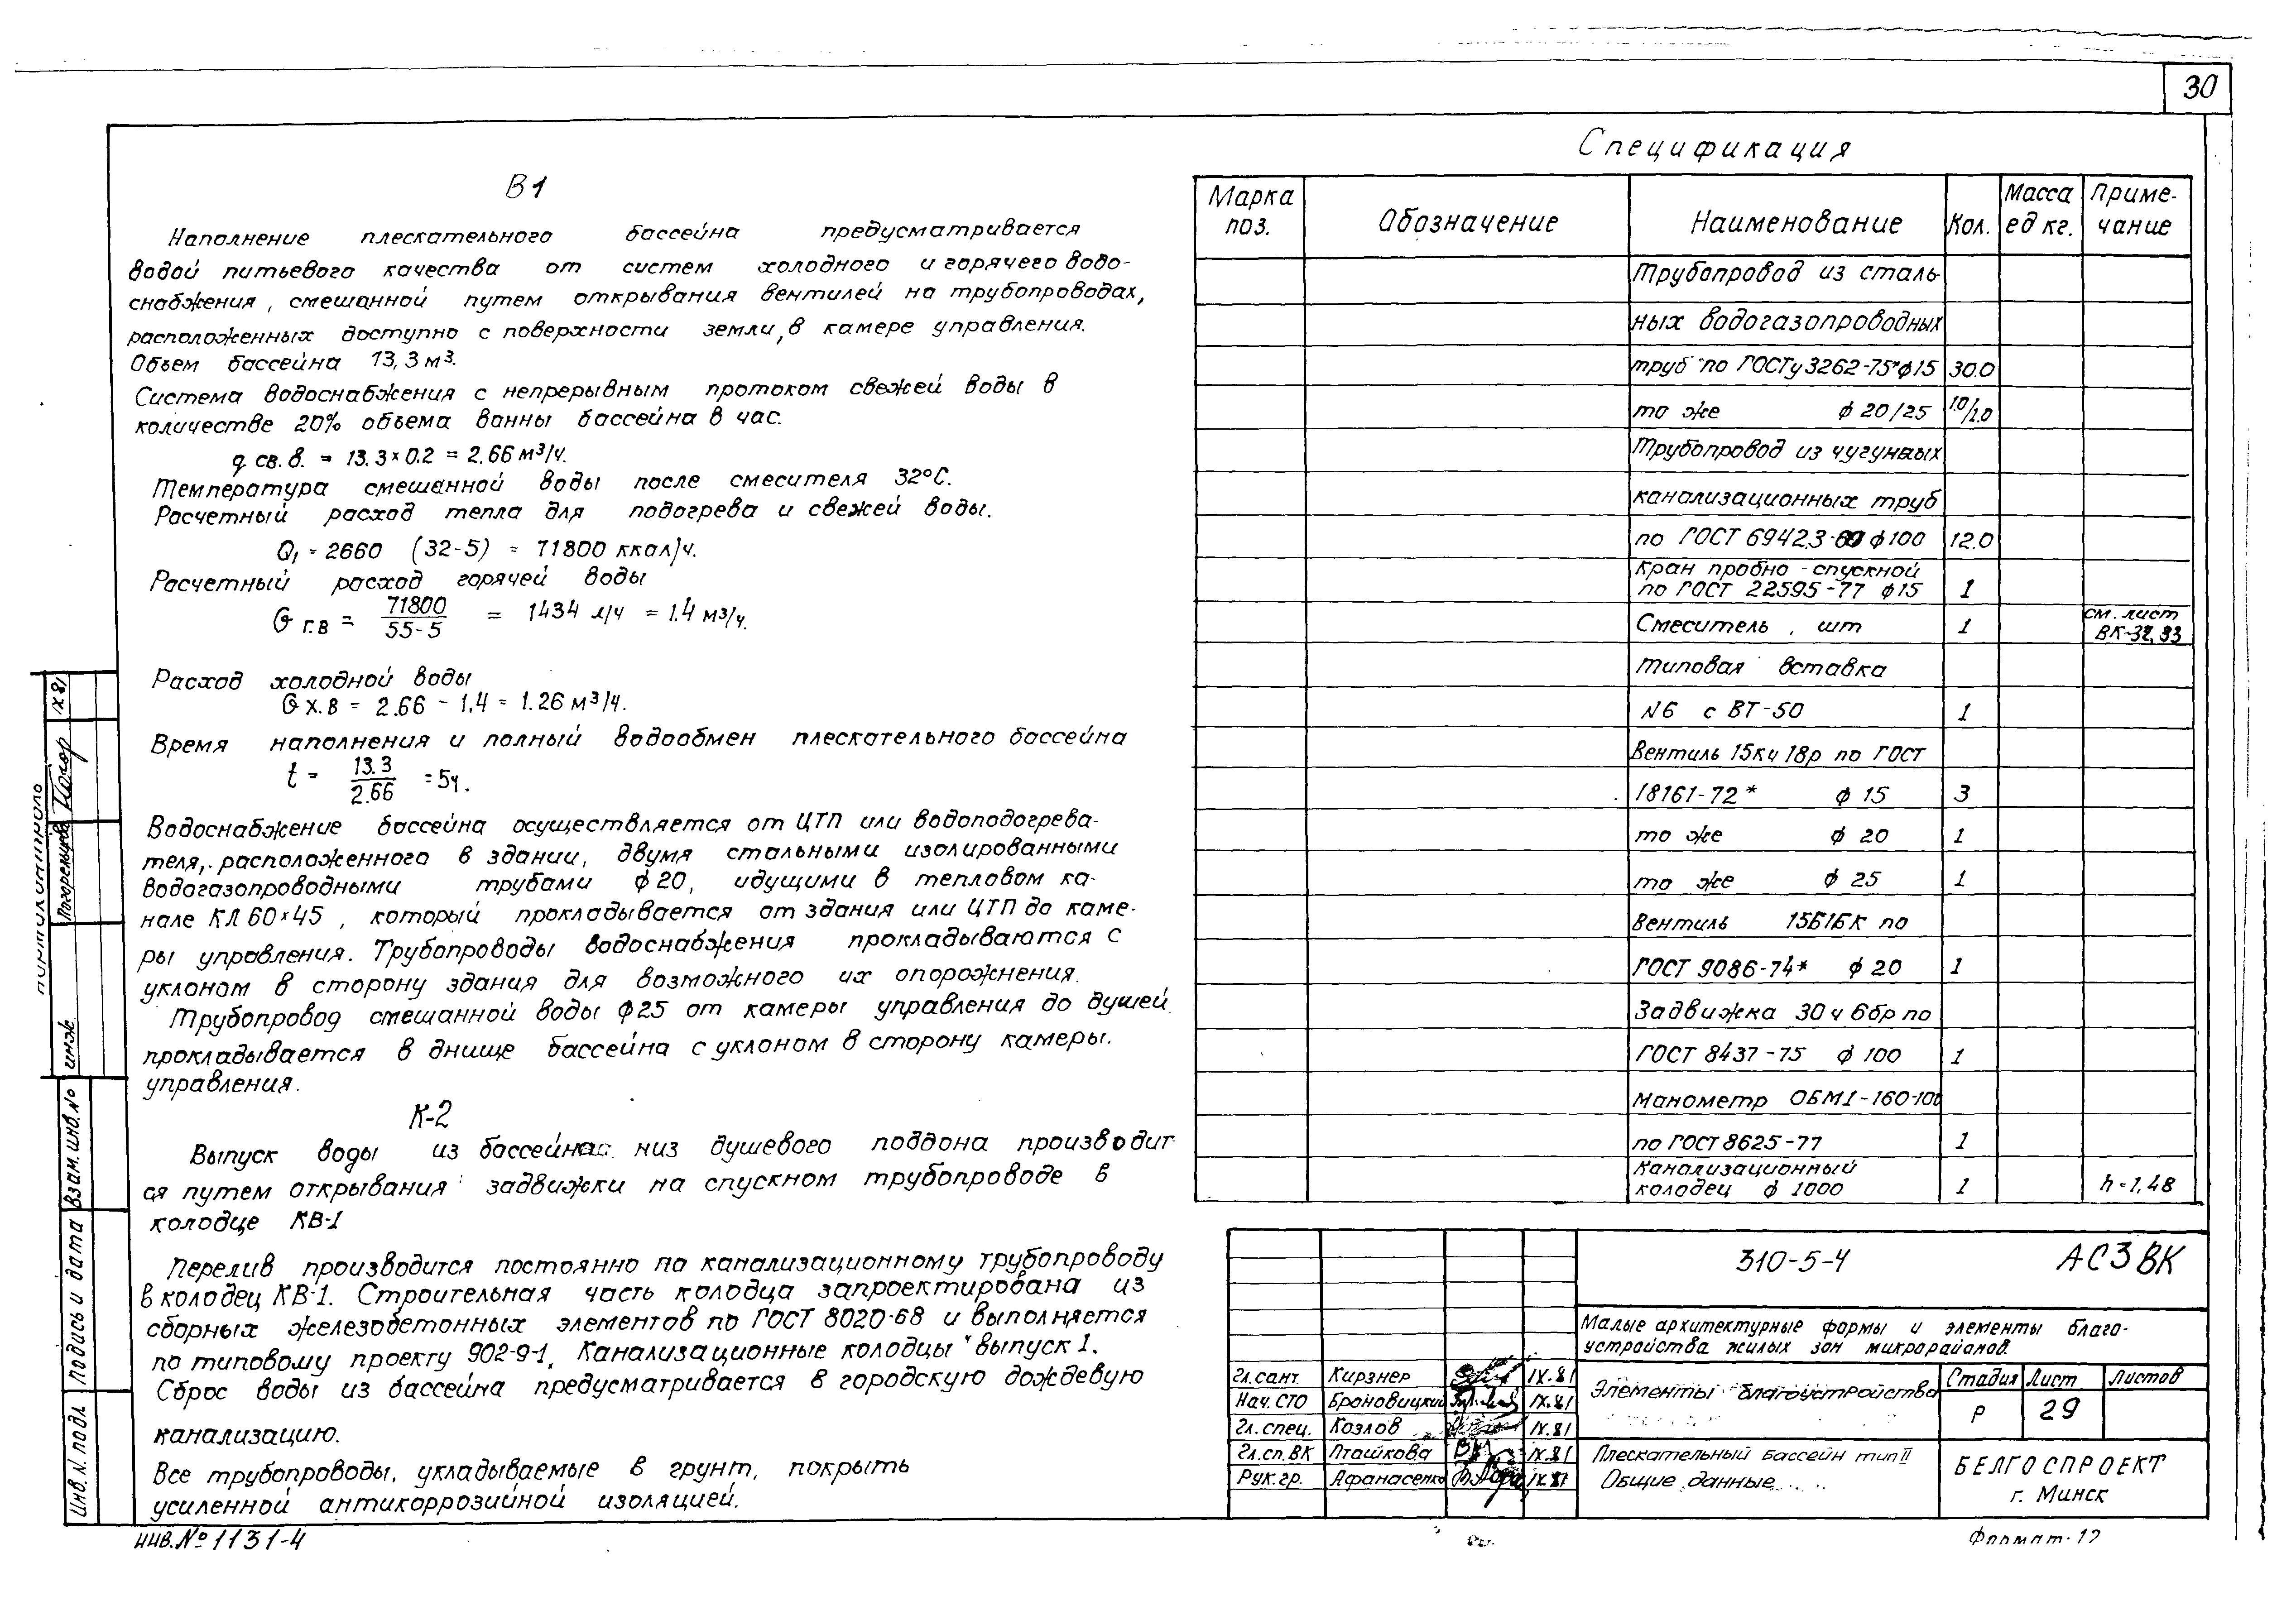 30
В1
Наполнение плескательного бассейна предусматривается
водой питьевого качества от систем холодного и горячего водо-
снабжения, смешанной путем открывания вентилей на трубопроводах,
расположенных доступно с поверхности земли, в камере управления.
Объем бассейна 13,3 м³.
Система водоснабжения с непрерывным протоком свежей воды в
количестве 20% объема ванны бассейна в час.
q св.в. = 13.3×0.2 = 2.66 м³/ч.
Температура смешанной воды после смесителя 32°С.
Расчетный расход тепла для подогрева и свежей воды.
Q₁ = 2660 (32-5) = 71800 ккал/ч.
Расчетный расход горячей воды
G г.в = 71800 / 55-5 = 1434 л/ч = 1.4 м³/ч.
Расход холодной воды
G х.в = 2.66 - 1.4 = 1.26 м³/ч.
Время наполнения и полный водообмен плескательного бассейна
t = 13.3 / 2.66 = 5ч.
Водоснабжение бассейна осуществляется от ЦТП или водоподогрева-
теля, расположенного в здании, двумя стальными изолированными
водогазопроводными трубами ф20, идущими в тепловом ка-
нале КЛ 60×45, который прокладывается от здания или ЦТП до каме-
ры управления. Трубопроводы водоснабжения прокладываются с
уклоном в сторону здания для возможного их опорожнения.
Трубопровод смешанной воды ф25 от камеры управления до душей
прокладывается в днище бассейна с уклоном в сторону камеры.
управления.
К-2
Выпуск воды из бассейна низ душевого поддона производит-
ся путем открывания задвижки на спускном трубопроводе в
колодце КВ-1
Перелив производится постоянно по канализационному трубопроводу
в колодец КВ-1. Строительная часть колодца запроектирована из
сборных железобетонных элементов по ГОСТ 8020-68 и выполняется
по типовому проекту 902-9-1, Канализационные колодцы" выпуск 1.
Сброс воды из бассейна предусматривается в городскую дождевую
канализацию.
Все трубопроводы, укладываемые в грунт, покрыть
усиленной антикоррозийной изоляцией.
Спецификация
Марка поз. Обозначение Наименование Кол. Масса ед кг. Приме-чание
Трубопровод из сталь-
ных водогазопроводных
труб по ГОСТу 3262-75* ф15 30.0
то же ф 20/25 1.0/1.0
Трубопровод из чугунных
канализационных труб
по ГОСТ 6942.3- ф100 12.0
Кран пробно-спускной
по ГОСТ 22595-77 ф15 1
Смеситель, шт 1 см. лист ВК-32,33
Типовая вставка
N6 с ВТ-50 1
Вентиль 15кч 18р по ГОСТ
18161-72* ф 15 3
то же ф 20 1
то же ф 25 1
Вентиль 15Б1БК по
ГОСТ 9086-74* ф 20 1
Задвижка 30ч 6бр по
ГОСТ 8437-75 ф 100 1
Манометр ОБМ1-160-100
по ГОСТ 8625-77 1
Канализационный
колодец ф 1000 1 h=1,48
310-5-4 АС3 ВК
Малые архитектурные формы и элементы благо-
устройства жилых зон микрорайонов.
Гл.сант. Кирзнер IX.81
Нач.СТО Броновицкий IX.81
Гл.спец. Козлов IX.81
Гл.сп.ВК Пташкова IX.81
Рук.гр. Афанасенко IX.81
Элементы благоустройства
Стадия Лист Листов
Р 29
Плескательный бассейн тип II
Общие данные
БЕЛГОСПРОЕКТ
г. Минск
Формат 12
НОРМОКОНТРОЛЬ
инж. Погорельцева IX 81
Взам.инв.№
Подпись и дата
Инв.N.подл
инв.№1131-4